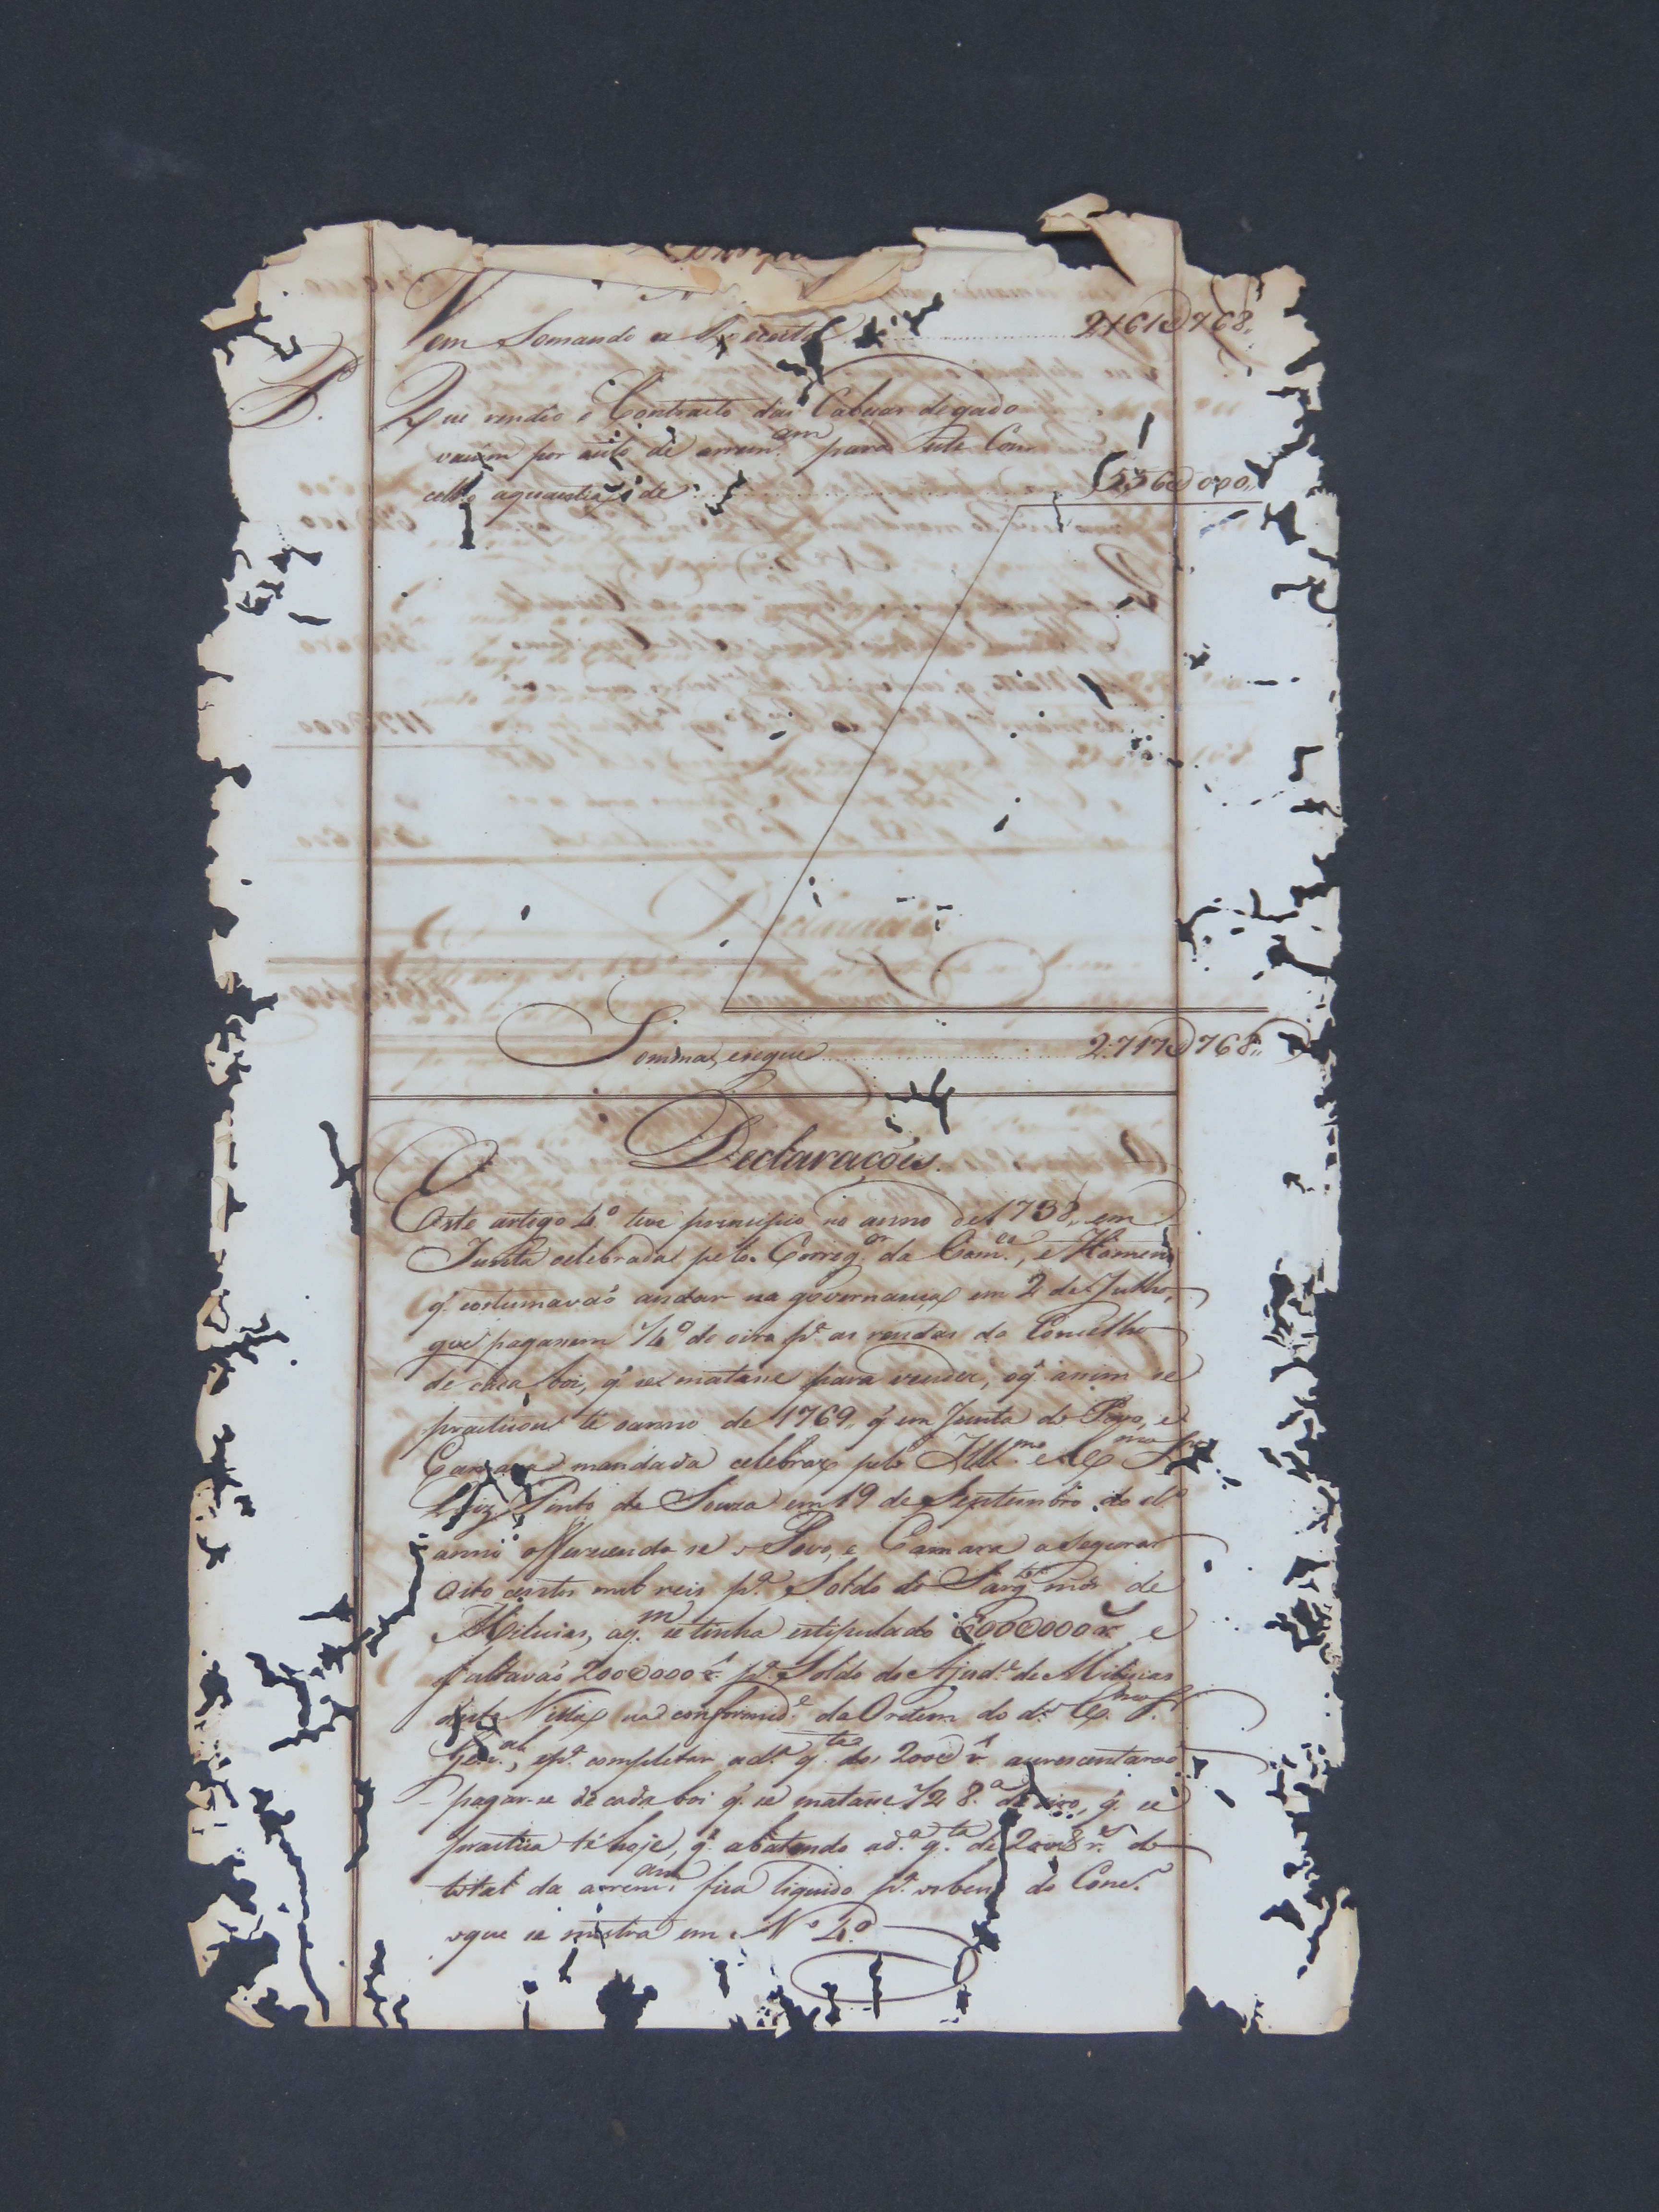 Vem Somando a Receita 2161@768,,
Que rendêo o Contracto das Cabeças de gado
vacûm por auto de arrem.am para este Con-
celho aquantia de 556@000,,
Somma, esegue 2:717@768,,
Declaraçoẽs.
Este artigo 4.º teve principio no anno de 1758,, em
Junta celebrada pelo Correg.or da Com.ca, e Homens
q̃ costumavaõ andar na governança em 2 de Julho,
que pagassem 1/4º de oiro p.ª as rendas do Concelho
de cada boi, q̃ se matasse para vender, oq̃ assim se
practicou té oanno de 1769,, q̃ em Junta do Povo, e
Camara mandada celebrar pelo Ill.mo e Ex.mo Sr.
Luiz Pinto de Souza em 19 de Septembro do d.º
anno offerecendo se o Povo, e Camara a segurar
oito centos mil reis p.ª Soldo do Sarg.to mór de
Milicias, aq.m se tinha estipulado 600@000 r.s e
faltavaõ 200@000 r.s p.ª Soldo do Ajud.e de Milicias
desta Villa na conformid.e da Ordem do d.º Ex.mo
Gen.al, e p.ª completar ad.ª q.tia dos 200@ r.s acrescentaraõ
pagar-se de cada boi q̃ se matasse 1/2 8.ª de oiro, q̃ se
practica té hoje, q̃ abatendo ad.ª q.tia de 200@ r.s do
total da arrem.am fica liquido p.ª os bens do Conc.º
oque se mostra em Nº 4.º